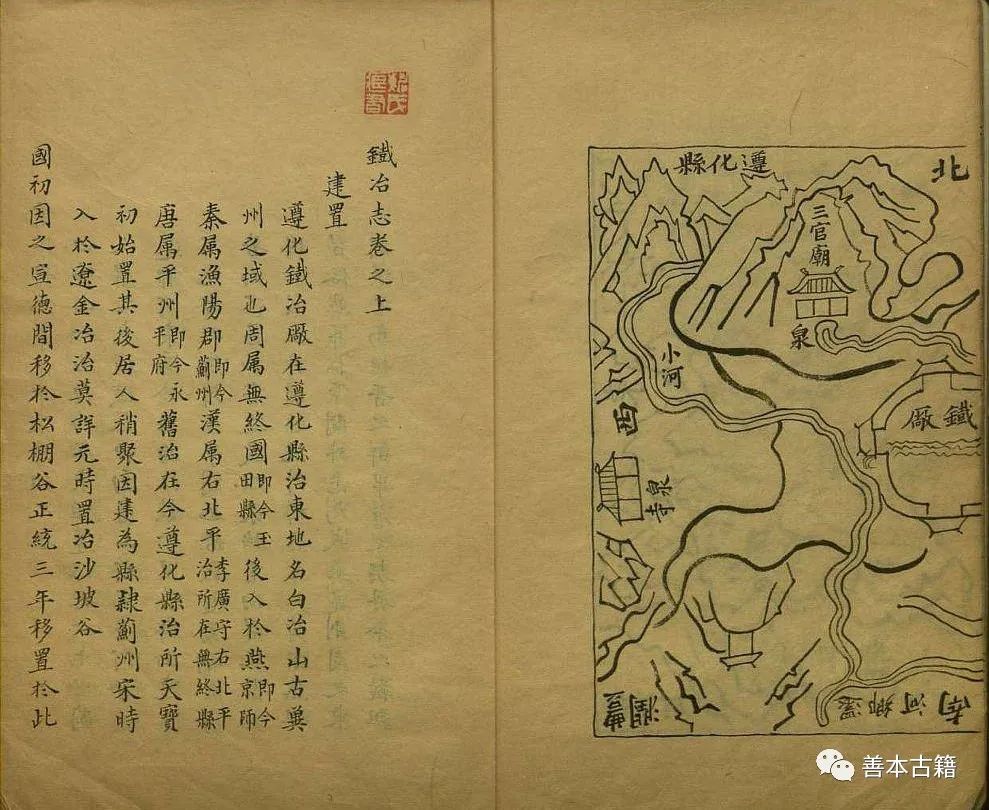 北
遵化縣
三官廟
泉
小河
鐵廠
西
泉寺
南
還鄉河
豐潤
鐵冶志卷之上
建置
遵化鐵冶廠在遵化縣治東地名白冶山古冀
州之域也周属無終國即今玉田縣後入於燕即今京師
秦属漁陽郡即今薊州漢属右北平李廣守右北平治所在無終縣
唐属平州即今永平府舊治在今遵化縣治所天寶
初始置其後居人稍聚因建為縣隷薊州宋時
入於遼金冶治莫詳元時置冶沙坡谷
國初因之宣德間移於松棚谷正統三年移置於此
善本古籍